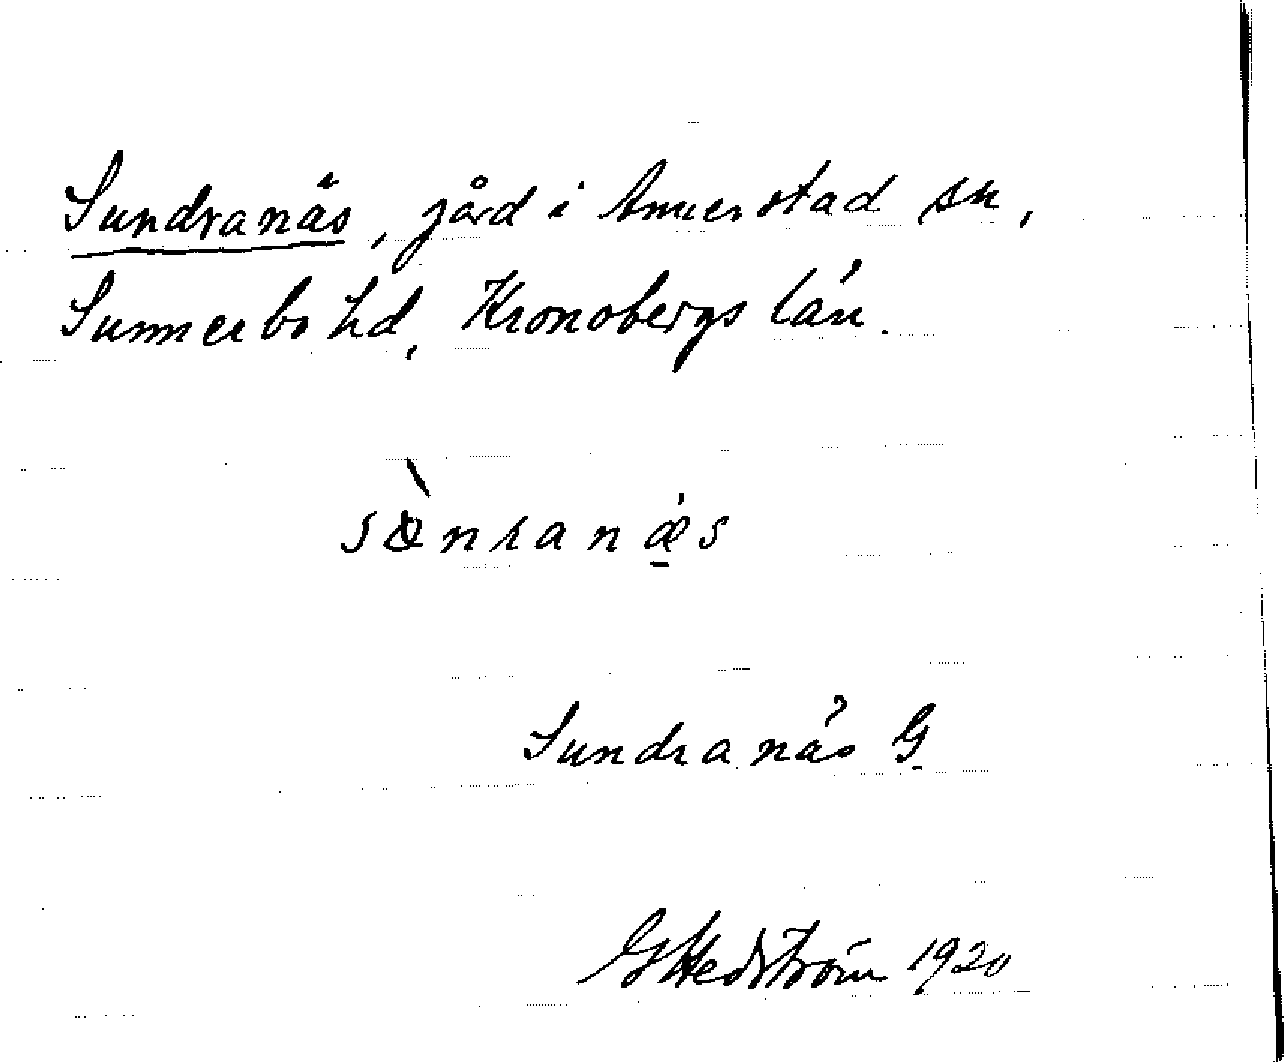 Sundranäs, gård i Annerstad sn,
Sunnerbo hd, Kronobergs län.
sɵ̀nranǽ̱s
Sundranäs G
G Hedström 1920